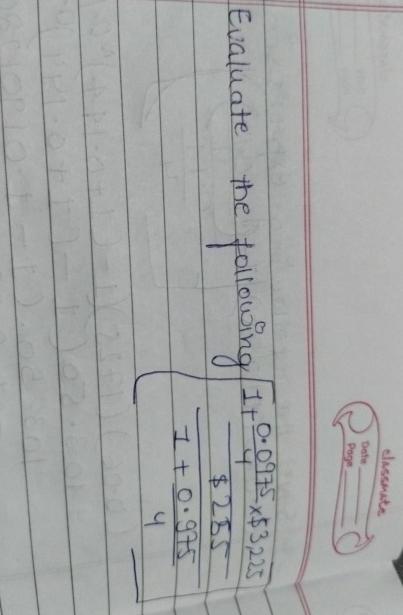 classmate
Date
Page
Evaluate the following
1+ 0.0975 x $3,225
4
$ 285
1 + 0.975
4